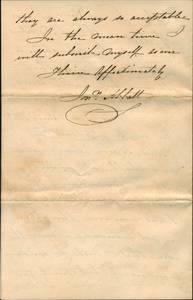 they are always so acceptable
In the mean time I
will subscribe myself as ever
Thine Affectionately
Jno. Abbott